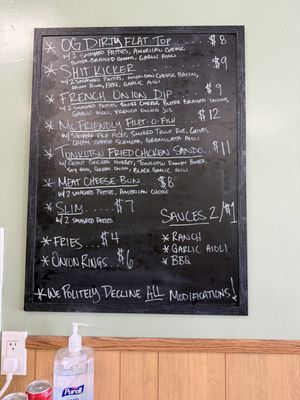 * OG Dirty Flat Top ... $8
w/ 2 Smashed Patties, American Cheese
Butter Braised Onions, Garlic Aioli
* Shit Kicker $9
w/ 2 Smashed Patties, American Cheese, Bacon,
Onion Ring, BBQ, Garlic Aioli
* French Onion Dip $9
w/ 2 Smashed Patties, Swiss Cheese, Butter Braised Onions,
Garlic Aioli, French Onion Jus
* Mc Friendly Filet-O-Fish $12
w/ Square Fish
Cream Cheese
* Tonkotsu Fried Chicken Sando... $11
w/ Giant Chicken Nugget, Tonkotsu Ramen Butter,
Soy Egg, Green Onion, Black Garlic Aioli
* Meat Cheese Bun $8
w/ 2 Smashed Patties, American Cheese
* Slim ..... $7
w/ 2 Smashed Patties
* Fries... $4
* Onion Rings. $6
Sauces 2/$1
* Ranch
* Garlic Aioli
* BBQ
* We Politely Decline All Modifications!
Purell